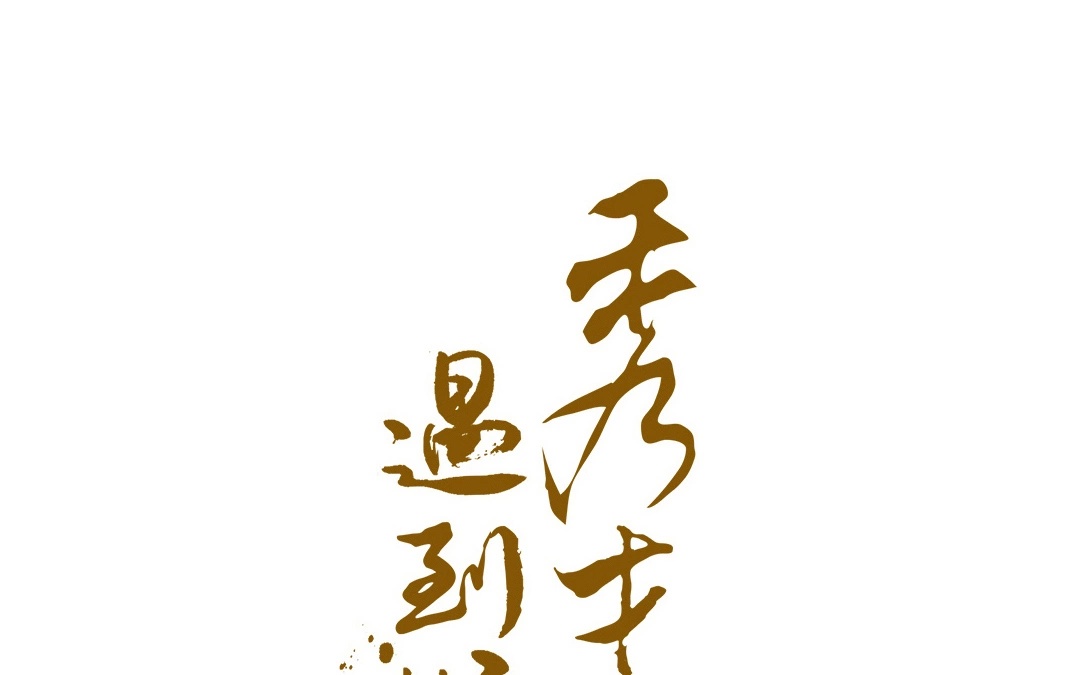 秀才
遇到